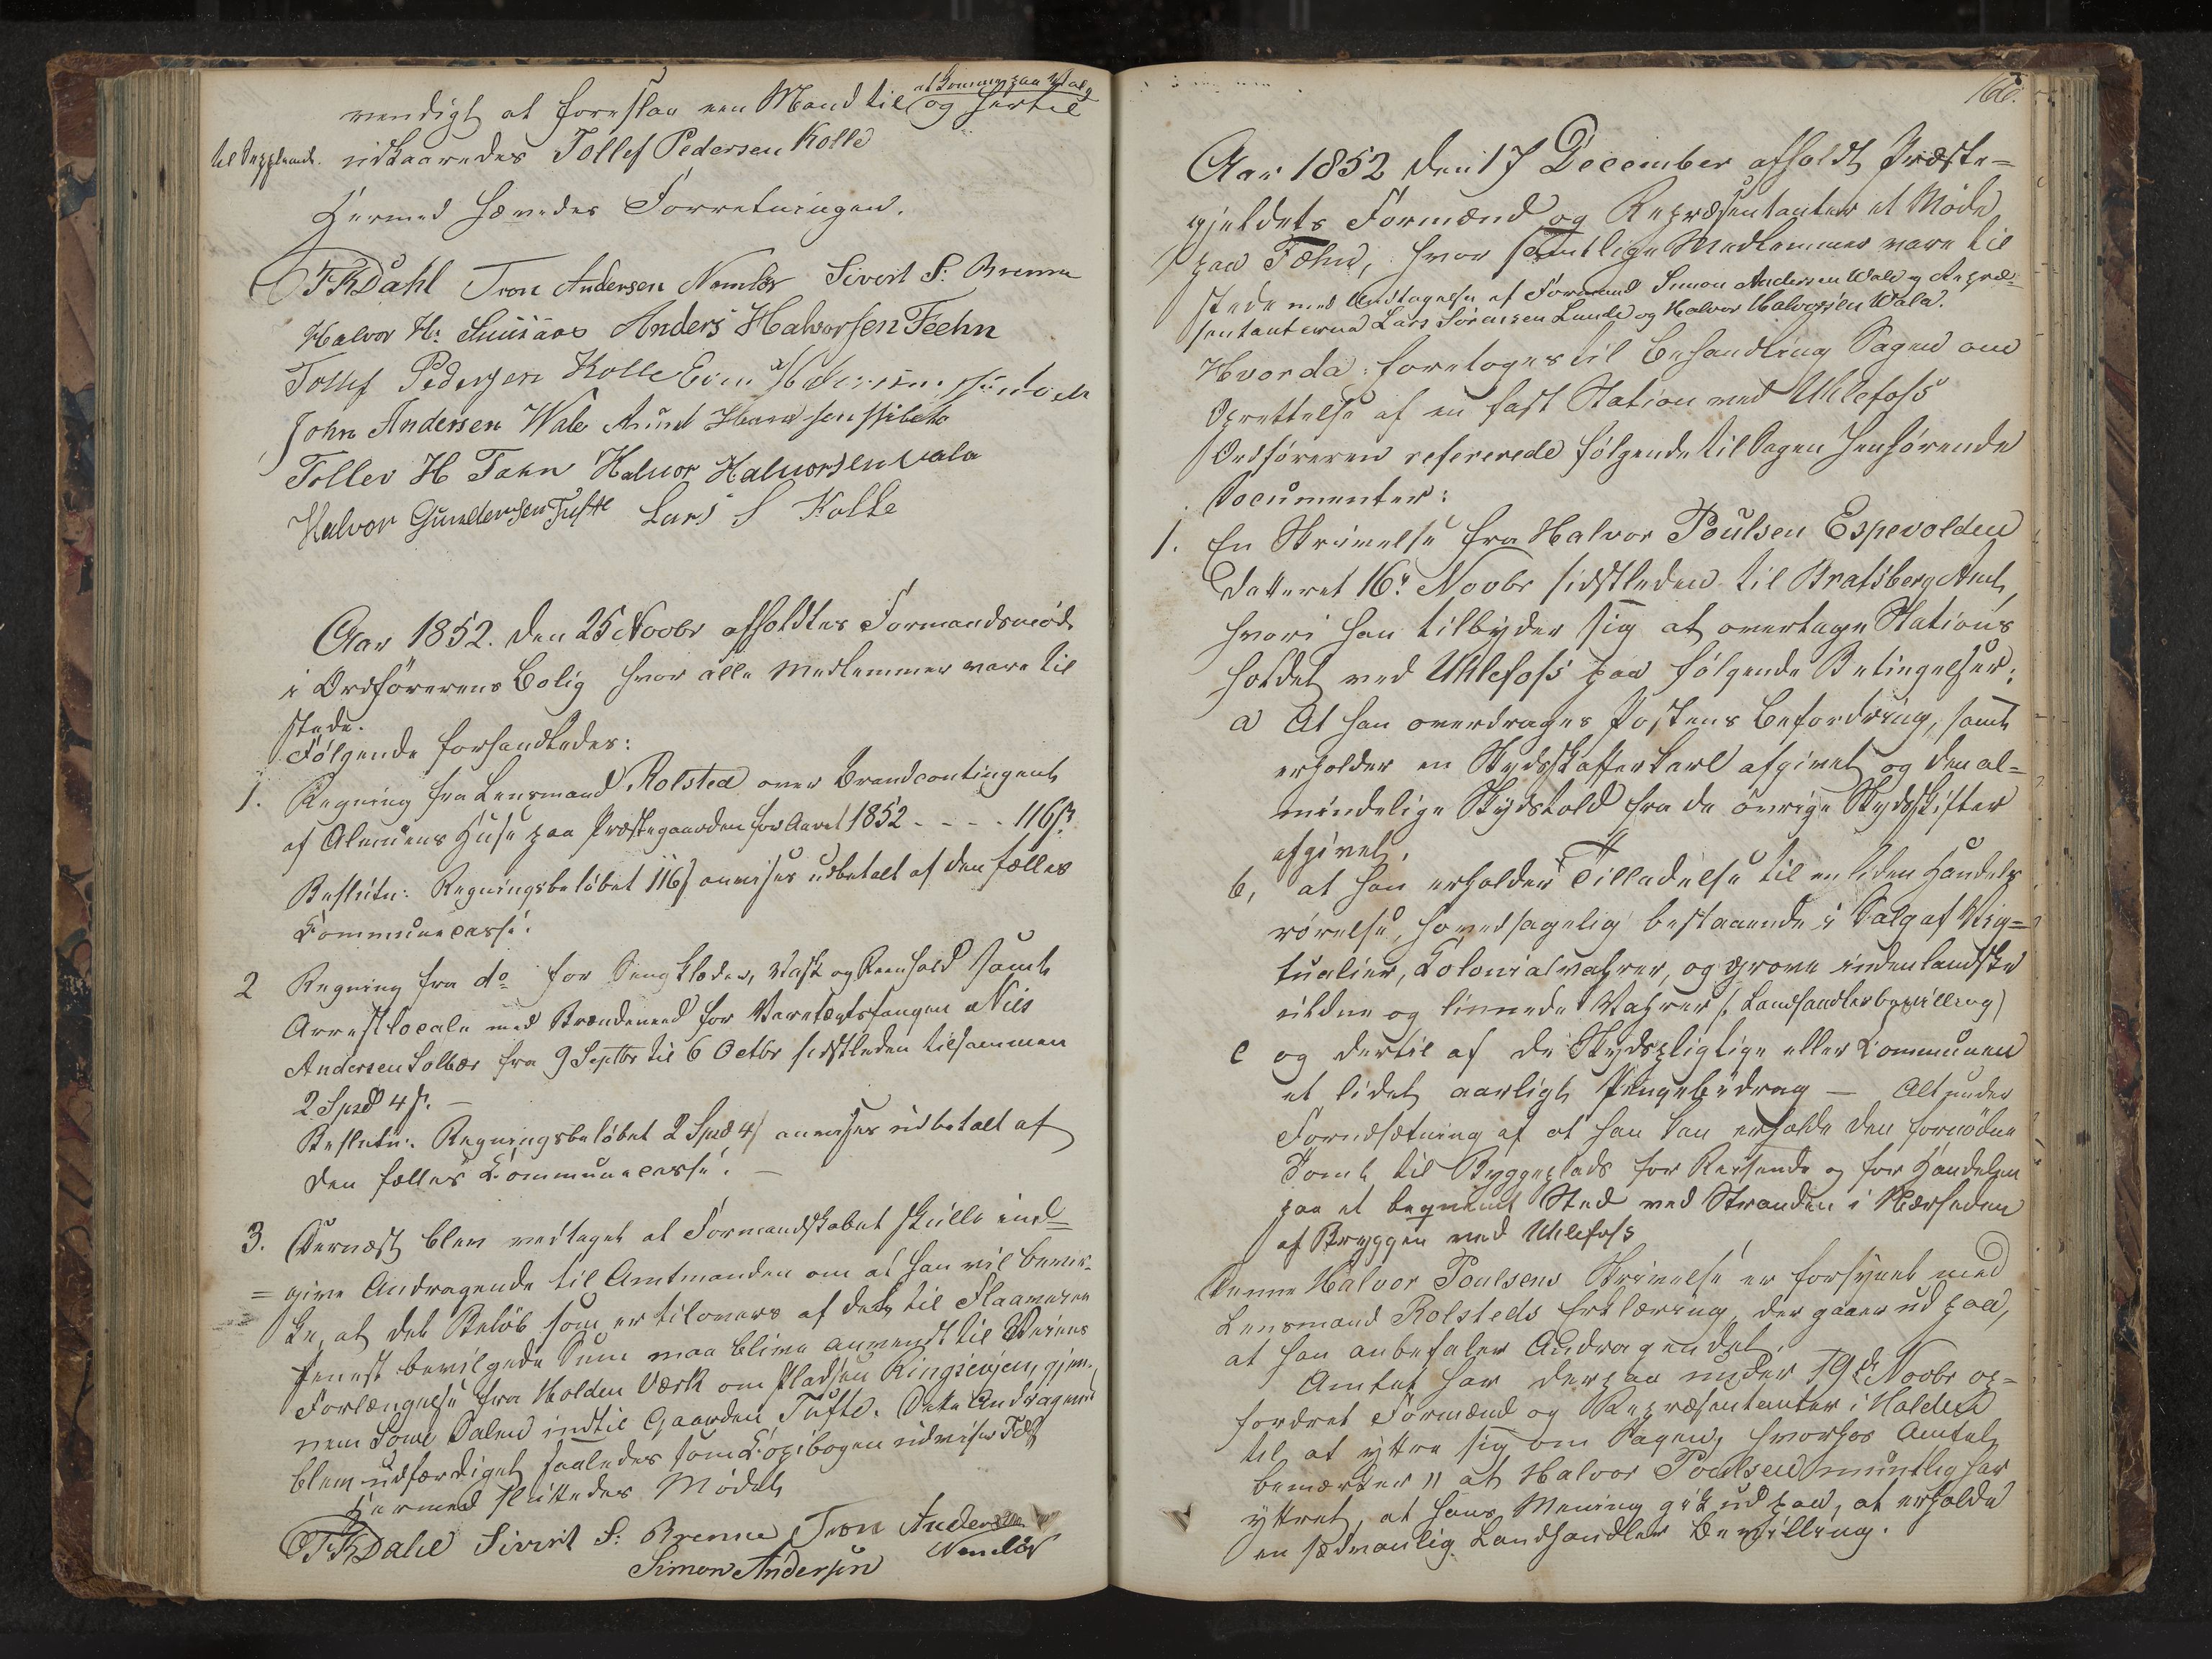 at komme paa Valg
vendigt at foreslaa een Mand til og hertil
til Suppleant. udkaaredes Tollef Pedersen Kolle
Hermed hævedes Forretningen.
TRDahl Tron Andersen Namløs Sivert S: Brenne
Halvor H: Anders Halvorsen Feehn
Tollef Pedersen Kolle
John Andersen Wale Amund
Tollev H Fæhn Halvor Halvorsen vala
Halvor Gundersen Tufte Lars S Kolle
Aar 1852. den 25 Novbr afholdtes Formandsmøde
i Ordførerens Bolig hvor alle Medlemmer vare til
stede.
Følgende forhandledes:
1. Regning fra Lensmand Rolsted over Brandcontingent
af Almuens Huse paa Præstegaarden for Aaret 1852 - - - - 116 ß
Beslutn: Regningsbeløbet 116 ß anvises udbetalt af den fælles
Kommunecasse.
2 Regning fra do for Sengklæder, Vask og Reenhold samt
Arrestlocale med Brændeved for Varetægtsfangen Niels
Andersen Solbær fra 9 Septbr til 6 Octbr sidstleden tilsammen
2 Spd 4 ß. —
Beslutn: Regningsbeløbet 2 Spd 4 ß anvises udbetalt af
den fælles Kommunecasse. —
3. Dernæst blev vedtaget at Formandskabet skulle ind=
= give Andragende til Amtmanden om at han vil bevir-
ke, at det Beløb som er tilovers af det til Flaaveien
forlængelse fra Holden Værk om Pladsen Ringsevjen gjen-
nem Dalen indtil Gaarden Tufte. Dette Andragende
blev udfærdiget saaledes som Kopibogen udviser
Hermed sluttedes Mødet
TRDahl Sivert S: Brenne Tron Andersen
Namløs
Simon Andersen
168.
Aar 1852 den 17 December afholdt Præste=
gjeldets Formænd og Repræsentanter et Møde
paa Fæhn, hvor samtlige Medlemmer vare til
stede med Undtagelse af Formand Simon Andersen Wala og Repræ-
sentanterne Lars Sørensen Lunde og Halvor Halvorsen Wala.
Hvorda foretoges til Behandling Sagen om
Oprettelse af en fast Station ved Uhlefoss
Ordføreren refererede følgende til Sagen henhørende
Documenter:
1. En Skrivelse fra Halvor Poulsen Espevolden
datteret 16: Novbr sidstleden til Bratsberg Amt,
hvori han tilbyder sig at overtage Stations
holdet ved Uhlefoss paa følgende Betingelser:
a At han overdrages Postens Befordring, samt
erholder en Skydsskafferkarl afgivet og den al=
mindelige Skydstold fra de øvrige Skydsskifter
afgivet.
b, at han erholder Tilladelse til en liden Handels
rørelse, hovedsagelig bestaaende i Salg af Vig=
tualier, Kolonialvahrer, og grove indenlandske
uldne og linnede Vahrer (: Landhandlerbevilling)
c og dertil af de Skydspligtige eller Kommunen
et lidet aarligt Pengebidrag — Alt under
Forudsætning af at han kan erholde den fornødne
Tomt til Byggeplads for Reisende og for Handelen
paa et beqvemt Sted ved Stranden i Nærheden
af Bryggen ved Uhlefoss
Denne Halvor Poulsens Skrivelse er forsynet med
Lensmand Rolsteds Erklæring, der gaaer ud paa,
at han anbefaler Andragendet.
Amtet har derpaa under 19d Novbr op=
fordret Formænd og Repræsentanter i Holden
til at yttre sig om Sagen, hvorhos Amtet
bemærker " at Halvor Poulsen mundtlig har
yttret, at hans Mening gik ud paa, at erholde
en sædvanlig Landhandler Bevilling.